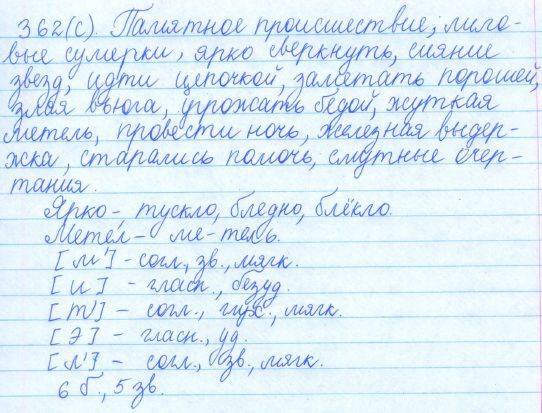 362(с). Памятное происшествие, лило-
вые сумерки, ярко сверкнуть, сияние
звезд, идти цепочкой, заметать порошей,
злая вьюга, угрожать бедой, жуткая
метель, провести ночь, железная выдер-
жка, старались помочь, смутные очер-
тания.
Ярко-, тускло, бледно, блёкло.
Метел – ме-тель.
[м'] - согл., зв., мягк.
[и] - гласн., безуд.
[т'] - согл., глух., мягк.
[э] - гласн., уд.
[л'] - согл., зв., мягк.
6 б., 5 зв.